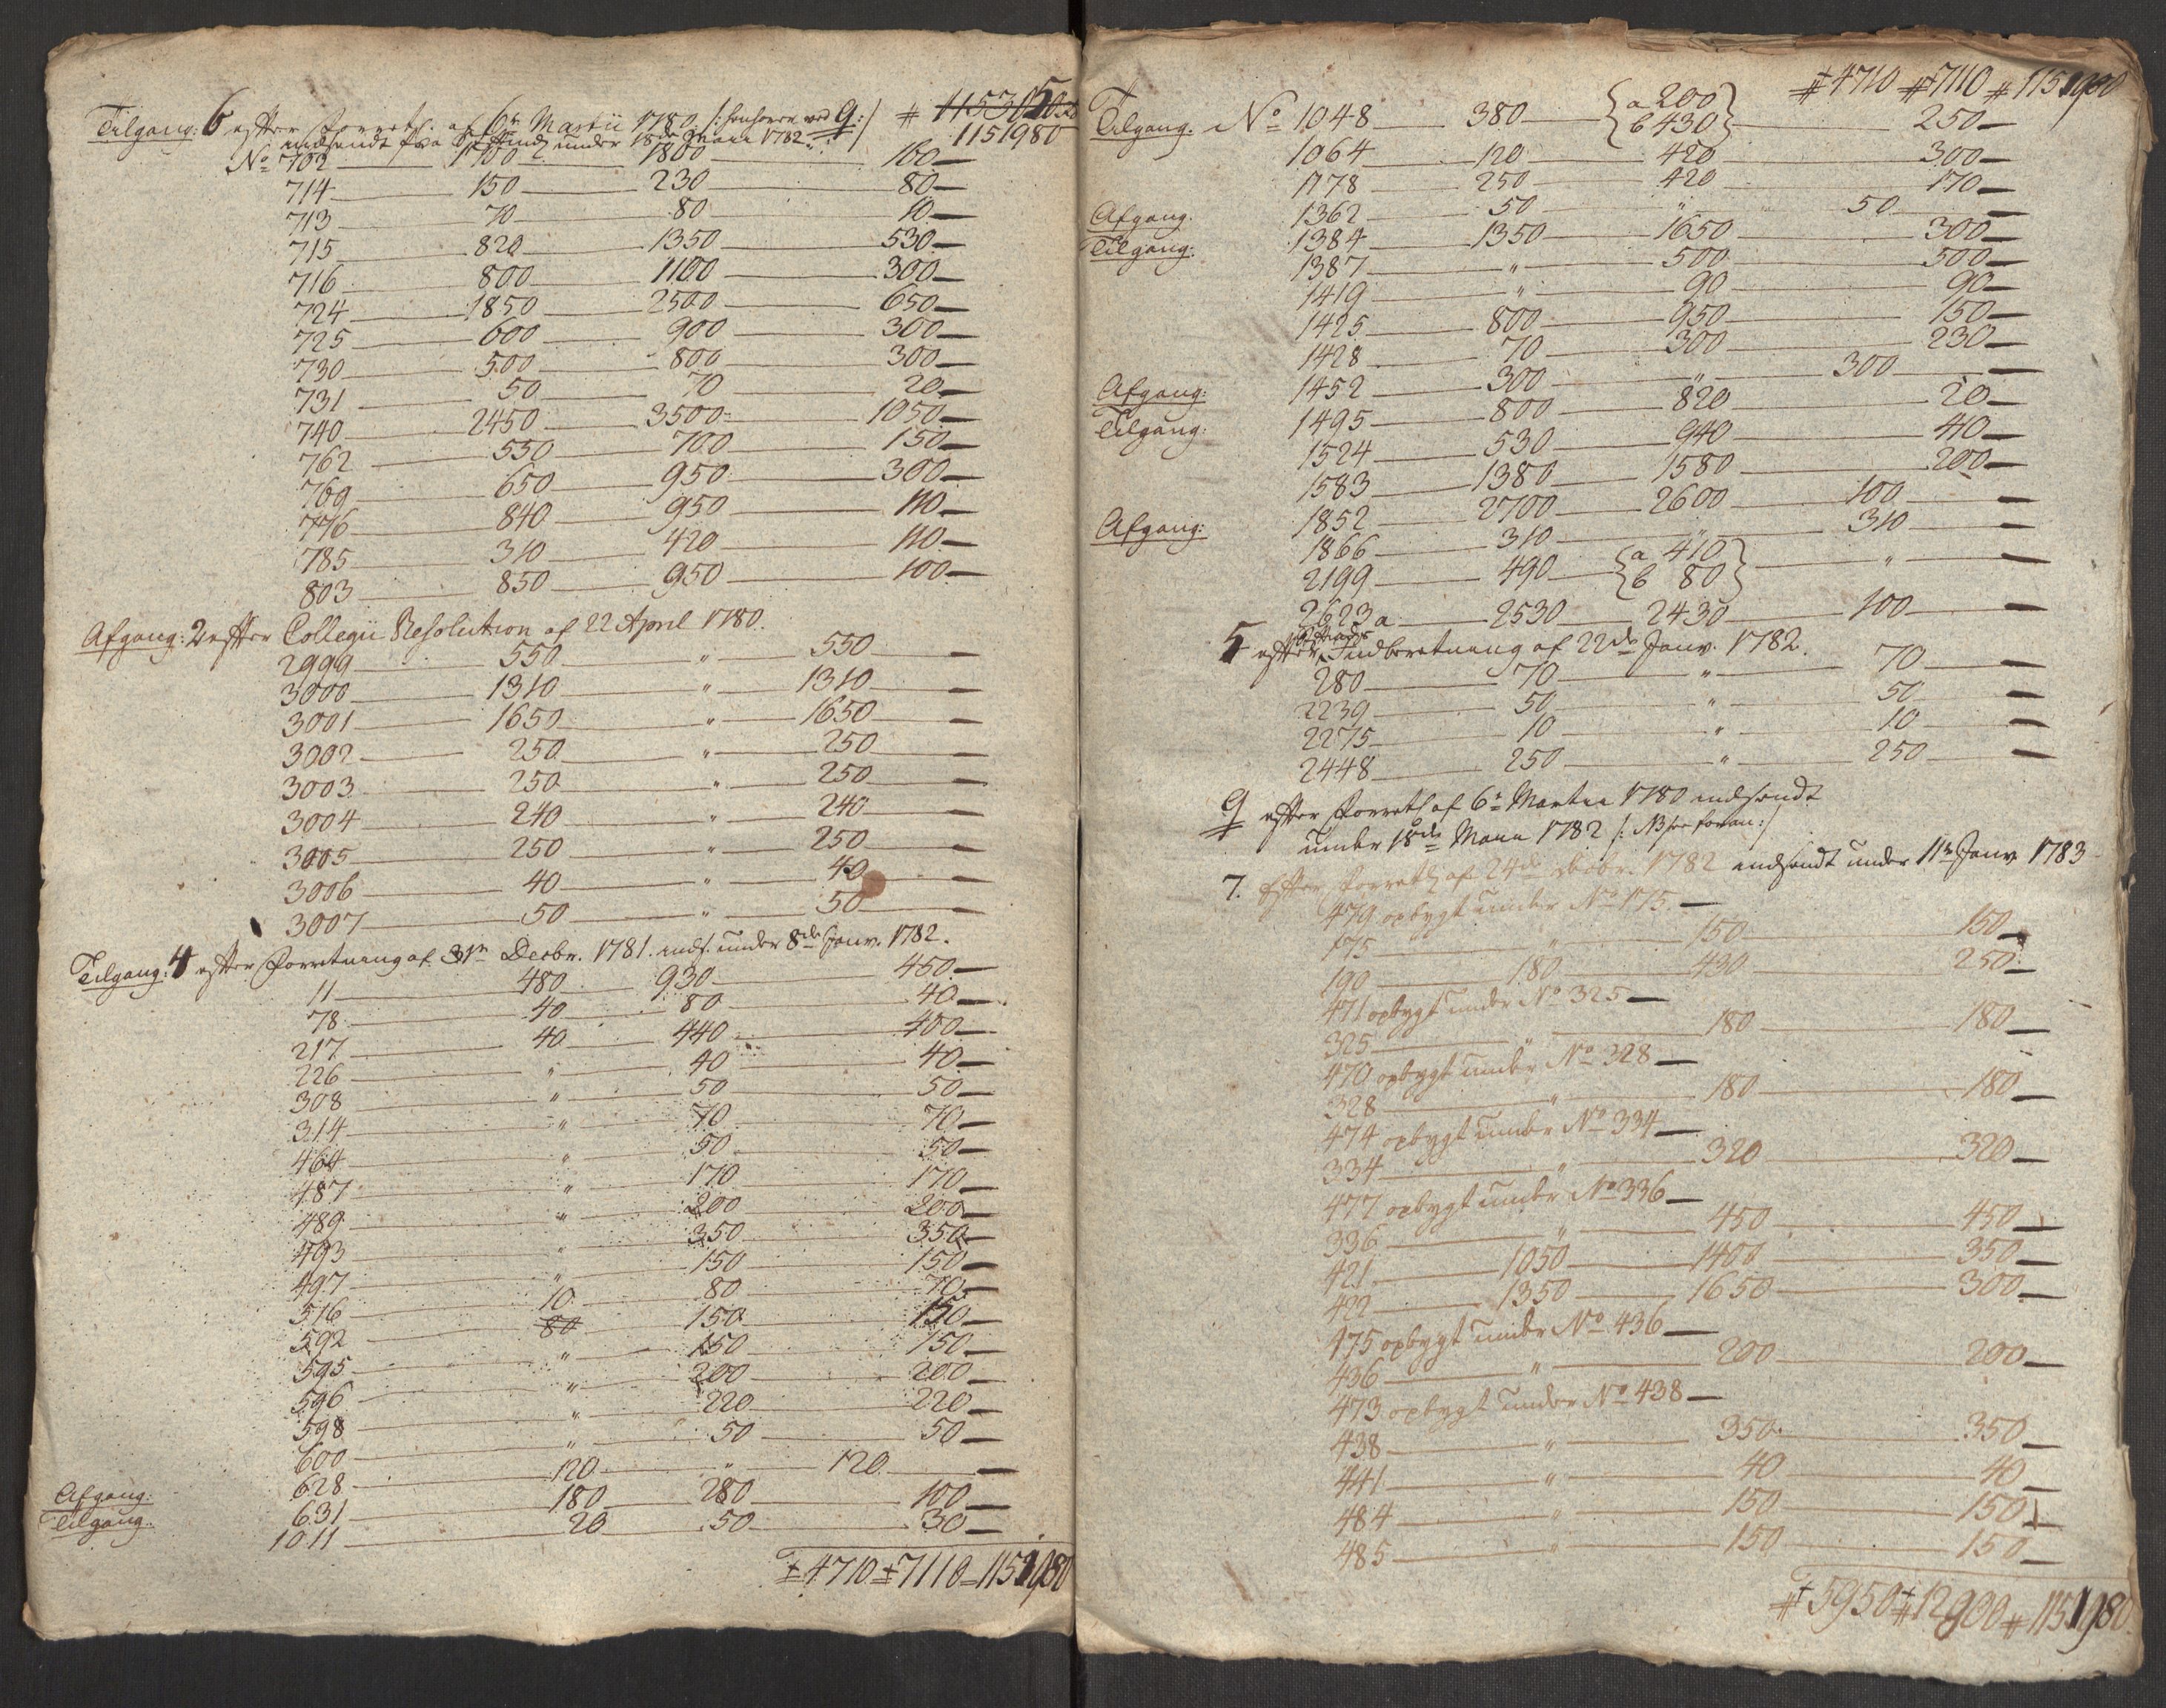 Tilgang: 6 efter Forretn. af 6te Martii 1780 /: henhører ved 9 :/ # 1153050
indsendt fra under 18de Maii 1782 1151980
No 702 1700 1800 100
714 150 230 80
713 70 80 10
715 820 1350 530
716 800 1100 300
724 1850 2500 650
725 600 900 300
730 500 800 300
731 50 70 20
740 2450 3500 1050
762 550 700 150
769 650 950 300
776 840 950 110
785 310 420 110
803 850 950 100
Afgang: 2 efter Collegii Resolution af 22 April 1780.
2999 550 " 550
3000 1310 " 1310
3001 1650 " 1650
3002 250 " 250
3003 250 " 250
3004 240 " 240
3005 250 " 250
3006 40 " 40
3007 50 " 50
Tilgang: 4 efter Forretning af 31te Decbr. 1781. inds. under 8de Janv. 1782.
11 480 930 450
78 40 80 40
217 40 440 400
226 " 40 40
308 " 50 50
314 " 70 70
464 " 50 50
487 " 170 170
489 " 200 200
493 " 350 350
497 " 150 150
516 10 80 70
592 80 150 150
595 " 150 150
596 " 200 200
598 " 220 220
600 " 50 50
Afgang: 628 120 " 120
Tilgang: 631 180 280 100
1011 20 50 30
± 4710 ± 7110 = 1151980
# 4710 # 7110 # 1151980
Tilgang. No 1048 380 {a 200 b 430} 250
1064 120 420 300
1178 250 420 170
Afgang. 1362 50 " 50
Tilgang: 1384 1350 1650 300
1387 " 500 500
1419 " 90 90
1425 800 950 150
1428 70 300 230
Afgang: 1452 300 " 300
Tilgang: 1495 800 820 20
1524 530 940 410
1583 1380 1580 200
Afgang: 1852 2700 2600 100
1866 310 " 310
2199 490 {a 410 b 80} "
2623 a 2530 2430 100
5 efter Indberetning af 22de Janv. 1782.
280 70 " 70
2239 50 " 50
2275 10 " 10
2448 250 " 250
9 efter Forretn af 6te Martii 1780 indsendt
under 18de Maii 1782 /: NB see foran :/
7. Efter Forretn af 24de Decbr. 1782 indsendt under 11te Janv. 1783
479 opbygt under No 175.
175 " 150 150
190 180 430 250
471 opbygt under No 325
325 " 180 180
470 opbygt under No 328
328 " 180 180
474 opbygt under No 334
334 " 320 320
477 opbygt under No 336
336 " 450 450
421 1050 1400 350
422 1350 1650 300
475 opbygt under No 436
436 " 200 200
473 opbygt under No 438
438 " 350 350
441 " 40 40
484 " 150 150
485 " 150 150
# 5950 # 12900 # 1151980